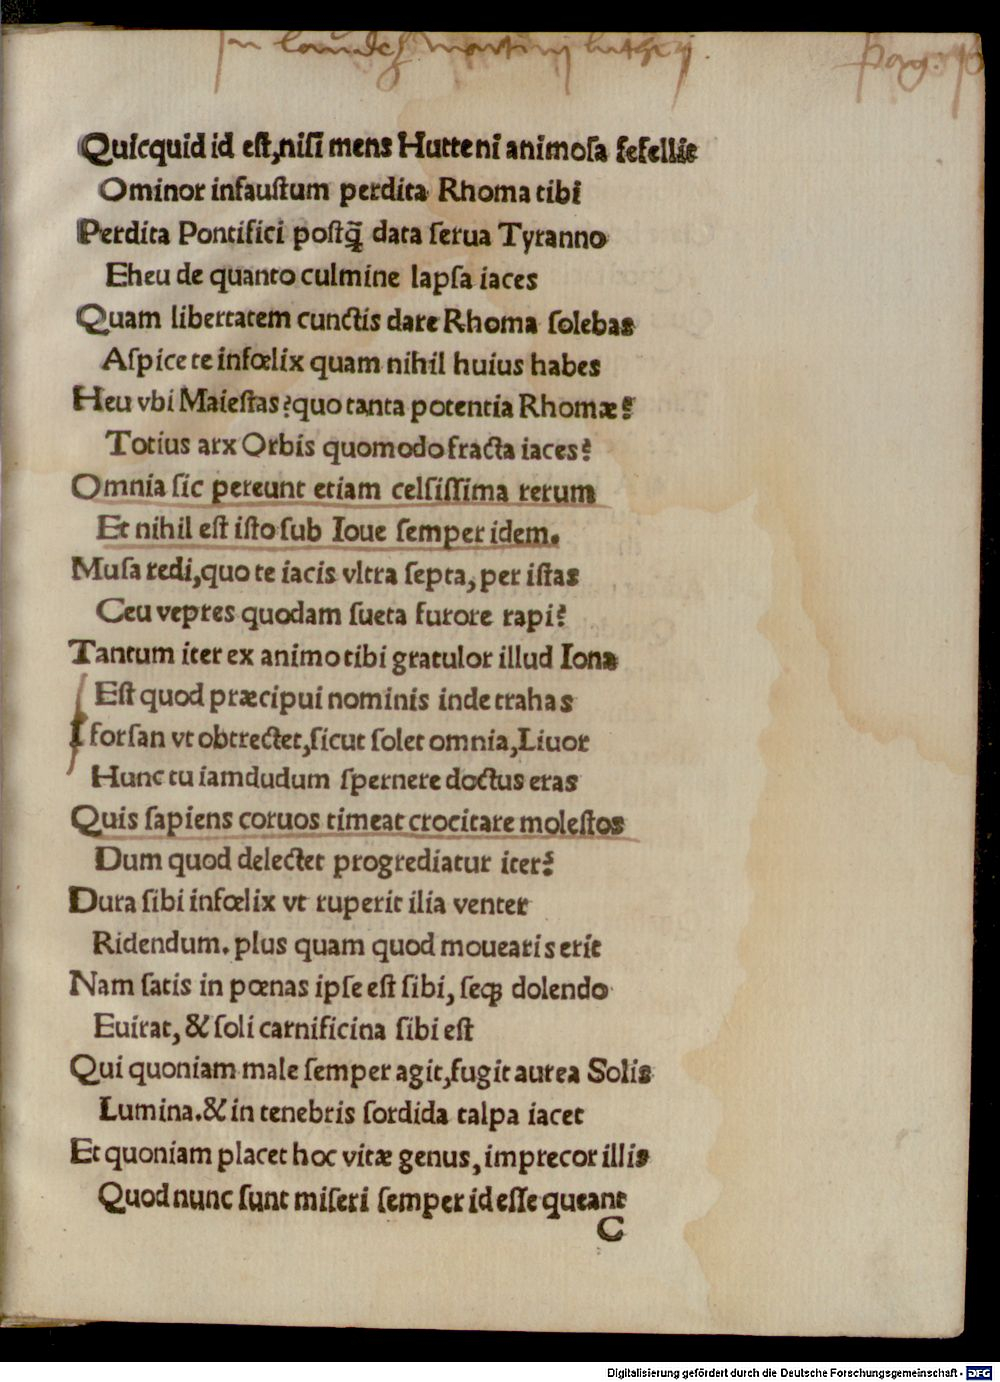 In laudē martinj lutherj.
Quicquid id eſt,niſi mens Hutteni animoſa fefellit
Ominor infauſtum perdita Rhoma tibi
Perdita Pontifici poſtq̄ data ſerua Tyranno
Eheu de quanto culmine lapſa iaces
Quam libertatem cunctis dare Rhoma ſolebas
Aſpice te infœlix quam nihil huius habes
Heu vbi Maieſtas?quo tanta potentia Rhomæ?
Totius arx Orbis quomodo fracta iaces?
Omnia ſic pereunt etiam celſiſſima rerum
Et nihil eſt iſto ſub Ioue ſemper idem.
Muſa redi,quo te iacis vltra ſepta,per iſtas
Ceu vepres quodam ſueta furore rapi?
Tantum iter ex animo tibi gratulor illud Iona
Eſt quod præcipui nominis inde trahas
I forſan vt obtrectet,ſicut ſolet omnia,Liuor
Hunc tu iamdudum ſpernere doctus eras
Quis ſapiens coruos timeat crocitare moleſtos
Dum quod delectet progrediatur iter?
Dura ſibi infœlix vt ruperit ilia venter
Ridendum.plus quam quod mouearis erit
Nam ſatis in pœnas ipſe eſt ſibi,ſeq; dolendo
Euirat,& ſoli carnificina ſibi eſt
Qui quoniam male ſemper agit,fugit aurea Solis
Lumina.& in tenebris ſordida talpa iacet
Et quoniam placet hoc vitæ genus,imprecor illis
Quod nunc ſunt miſeri ſemper id eſſe queant
C
Digitalisierung gefördert durch die Deutsche Forschungsgemeinschaft - DFG